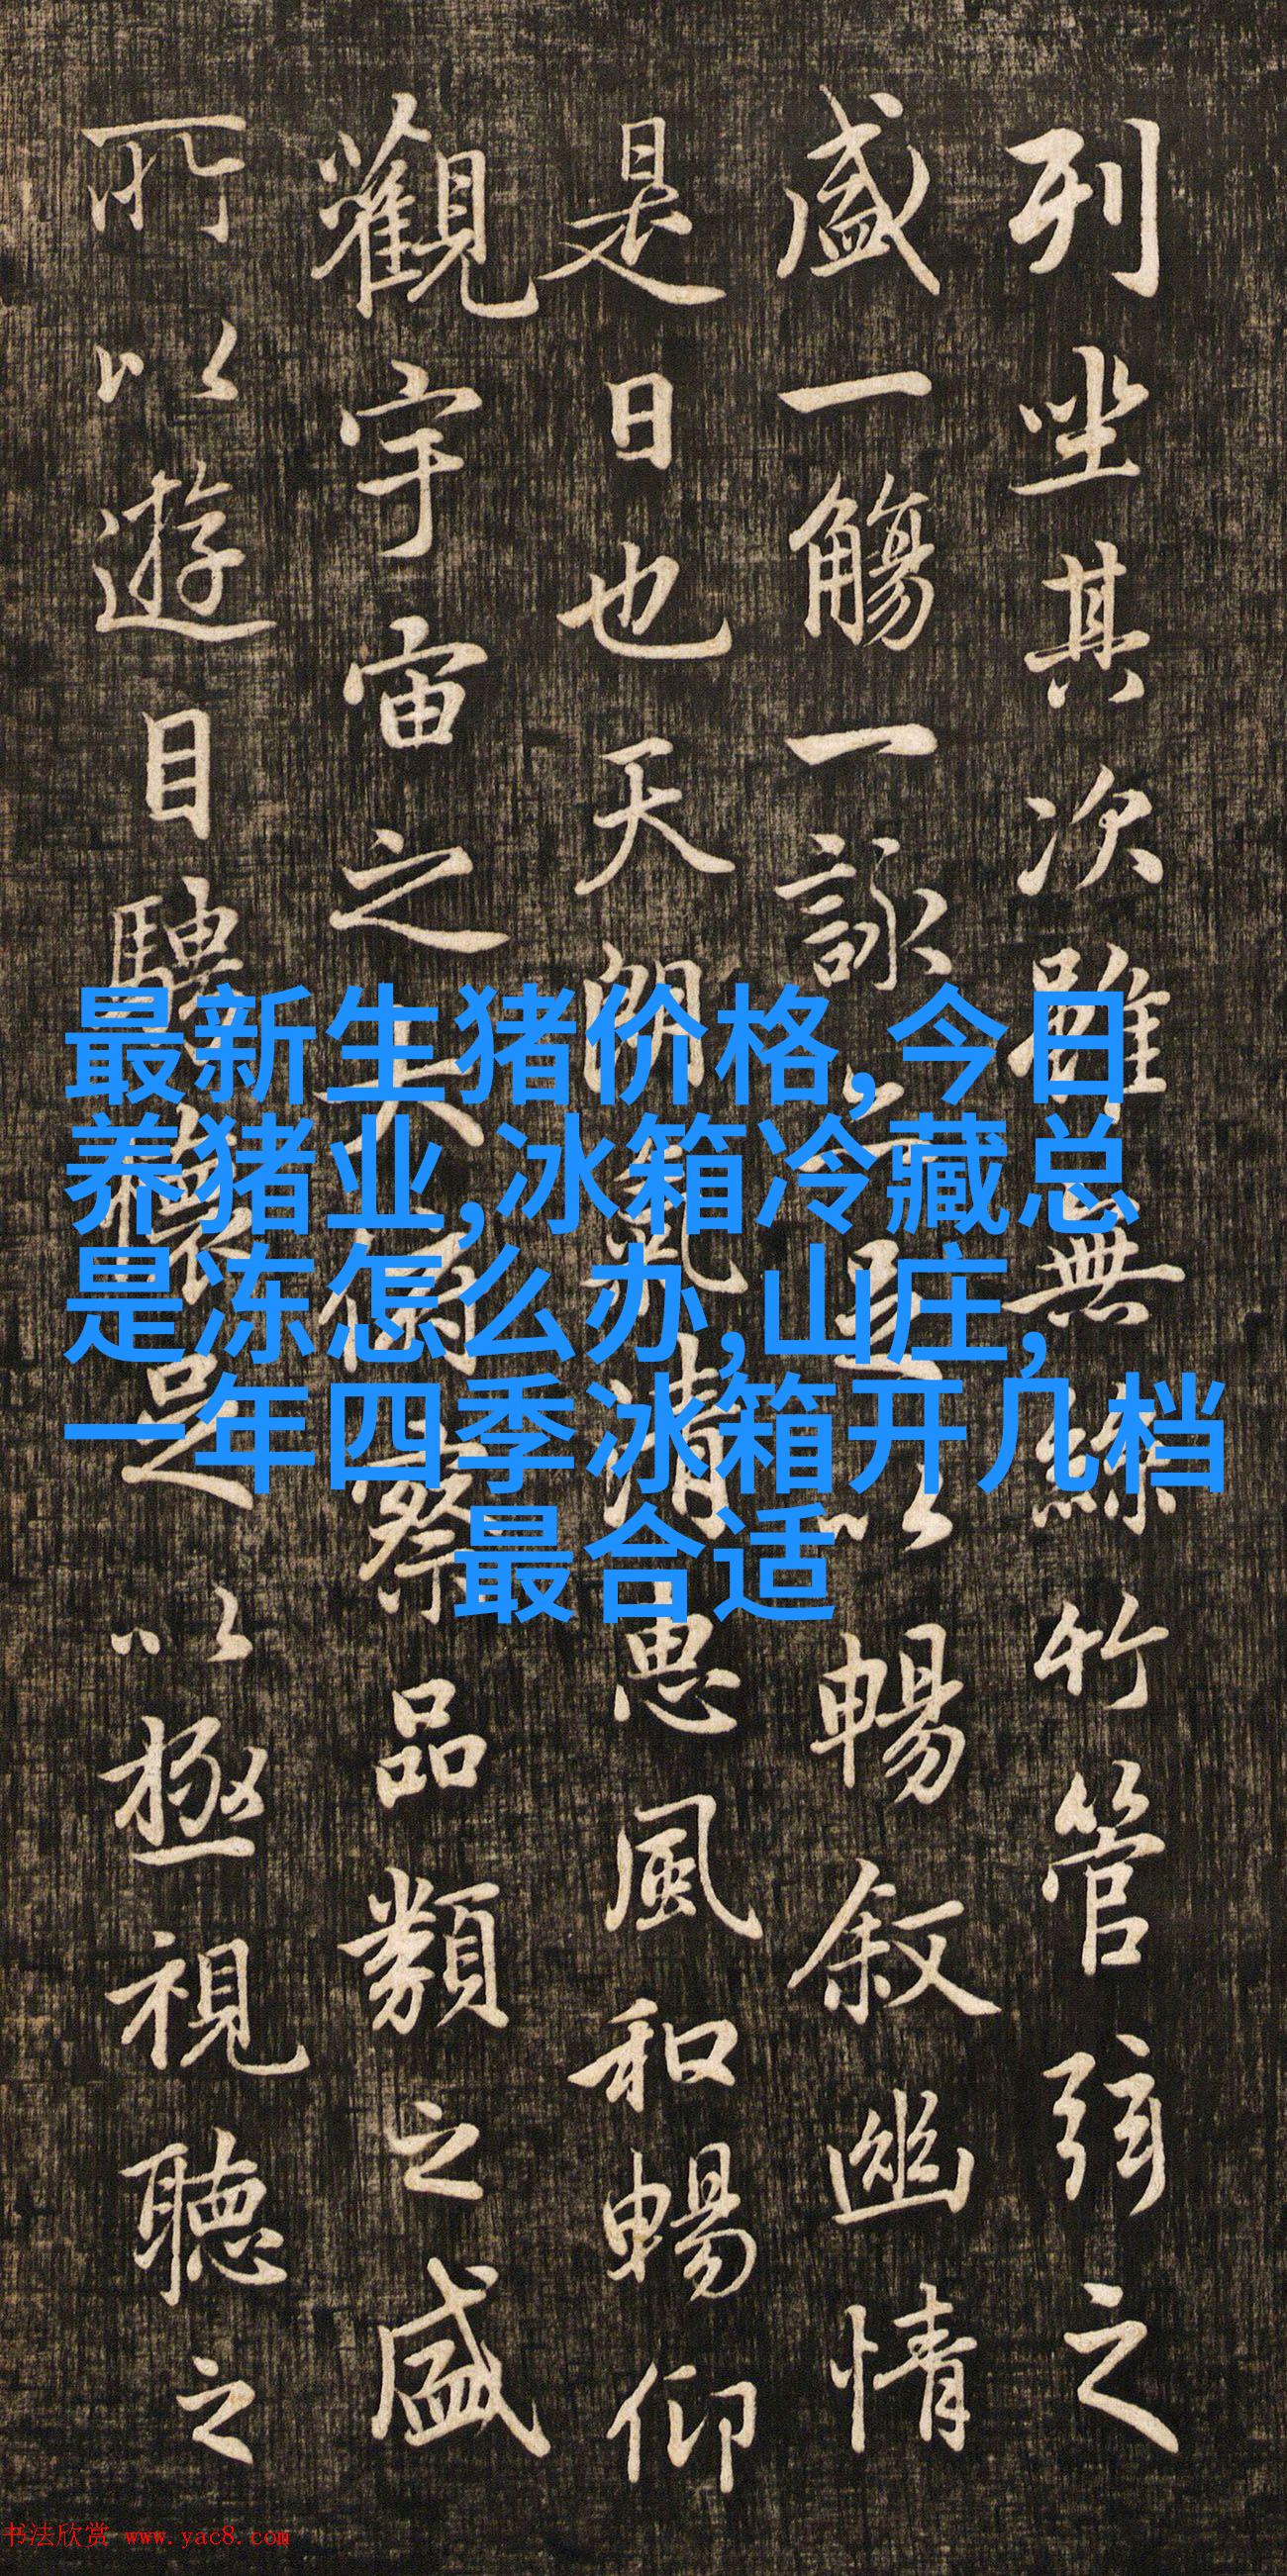 列坐其次雖無絲竹管弦之
盛一觴一詠亦足以暢叙幽情
是日也天朗氣清惠風和暢仰
觀宇宙之大俯察品類之盛
所以遊目騁懷足以極視聽之
最新生猪价格,今日
养猪业,冰箱冷藏总
是冻怎么办,山庄,
一年四季冰箱开几档
最合适
书法欣赏 www.yac8.com